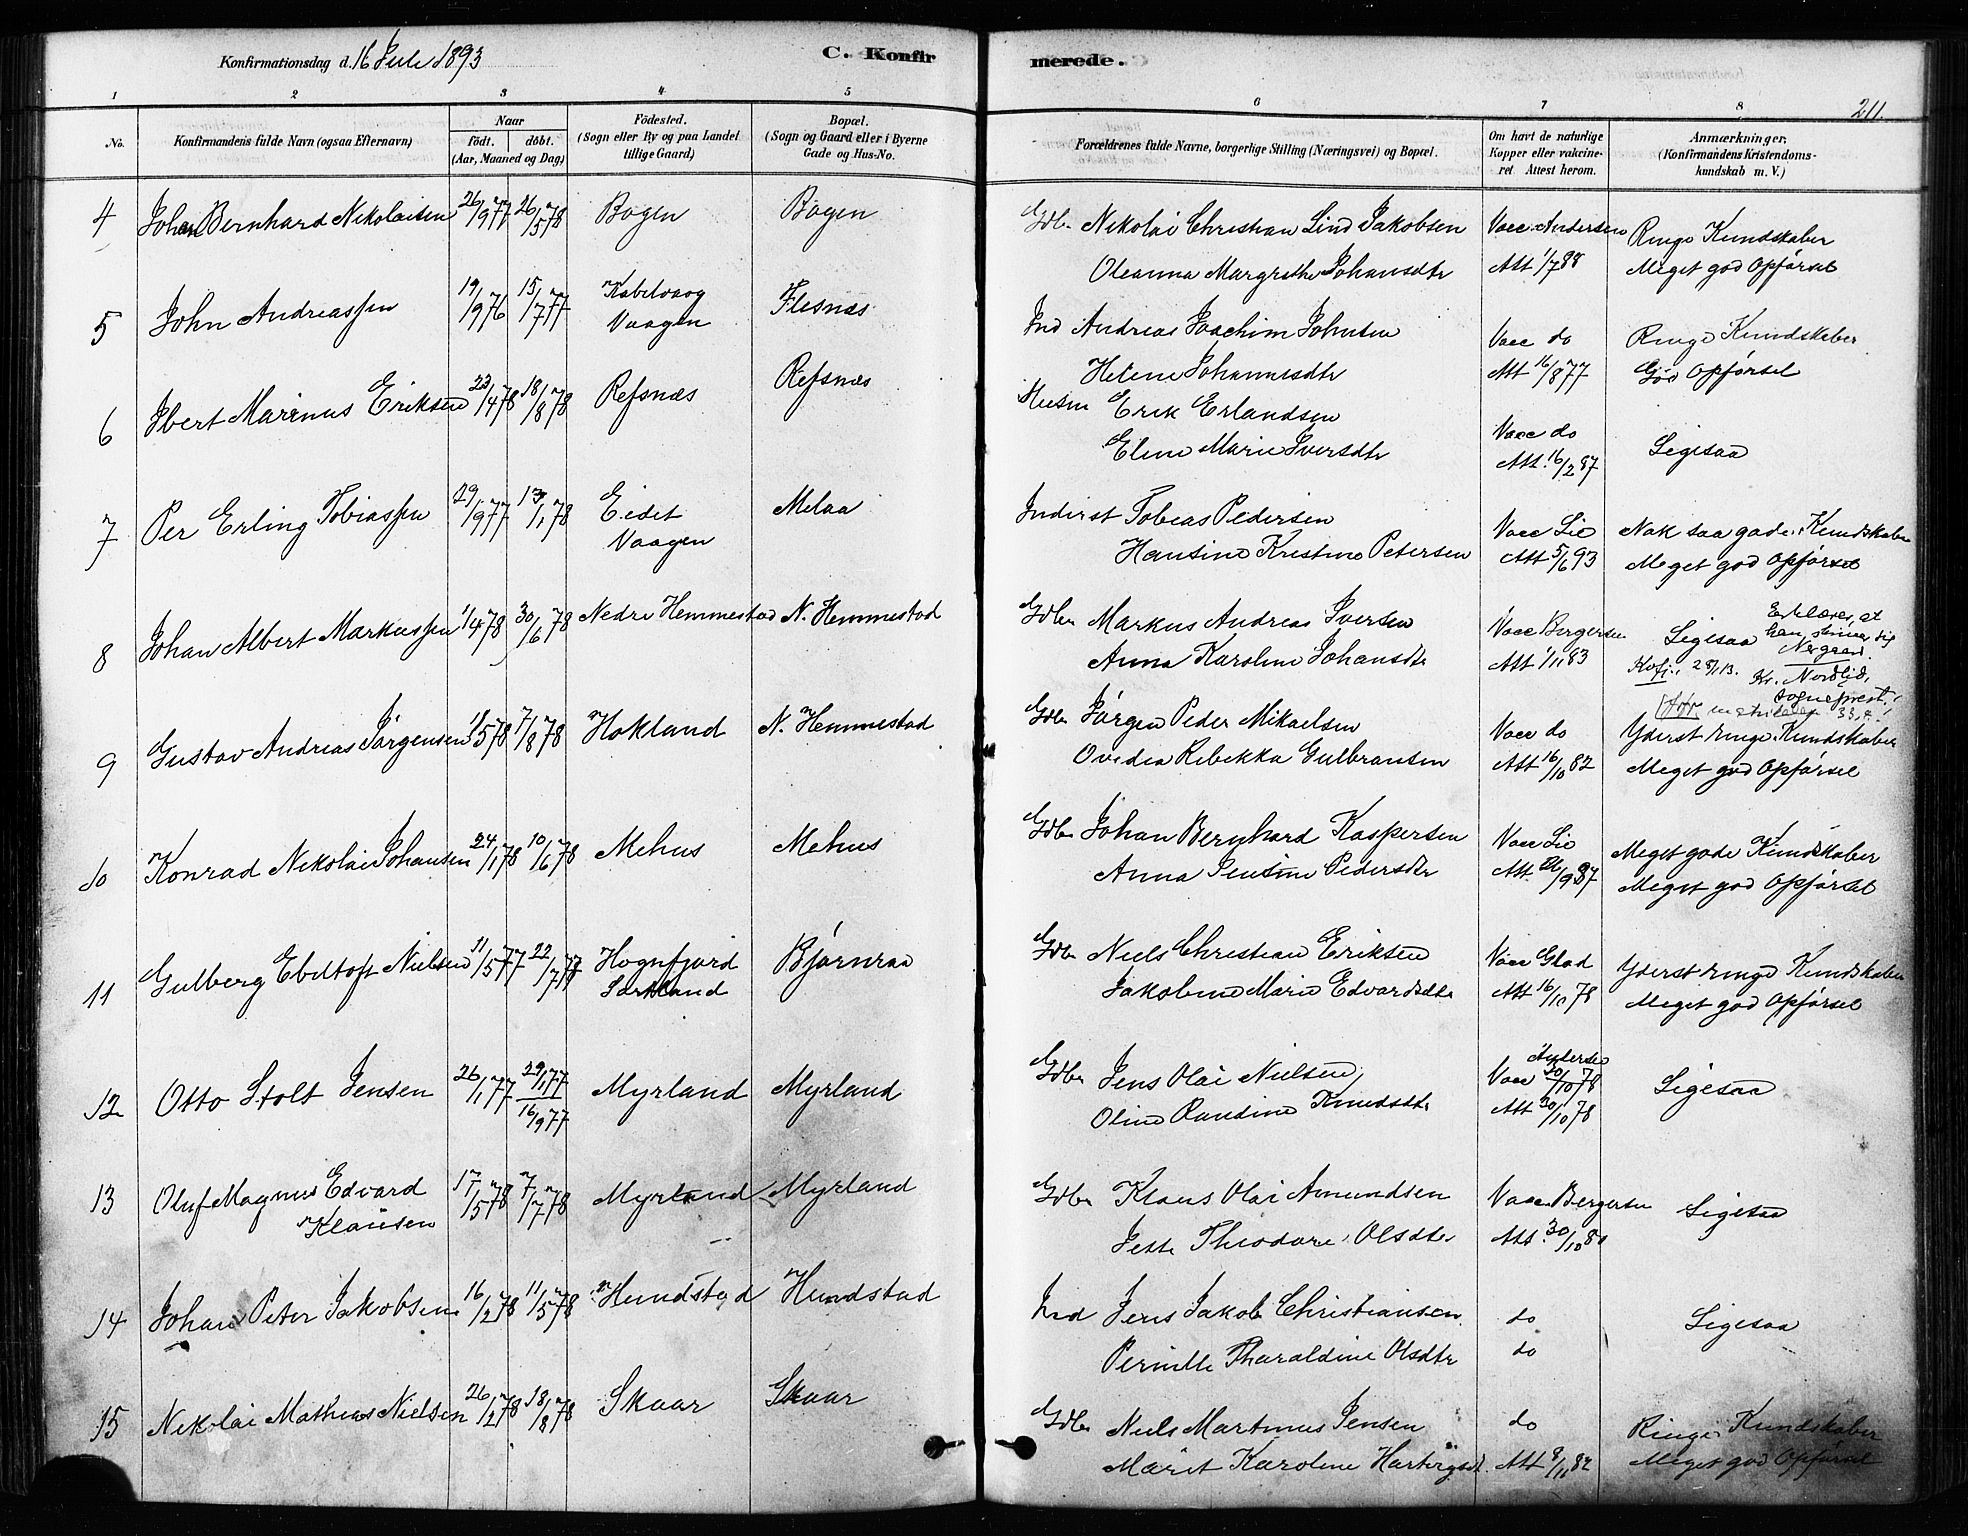 Konfirmationsdag d. 16 Juli 1893
C. Konfirmerede.
211.
1 2 3 4 5 6 7 8
No. Konfirmandens fulde Navn (ogsaa Efternavn) Naar födt. döbt. (Aar, Maaned og Dag) Födested. (Sogn eller By og paa Landet tillige Gaard) Bopæl. (Sogn og Gaard eller i Byerne Gade og Hus-No. Forældrenes fulde Navne, borgerlige Stilling (Næringsvei) og Bopæl. Om havt de naturlige Kopper eller vakcineret Attest herom. Anmærkninger. (Konfirmandens Kristendomskundskab m. V.)
4 Johan Bernhard Nikolaisen 26/9 77 26/5 78 Bogen Bogen Gdbr Nikolai Christian Lind Jakobsen Vacc. Andersen Ringe Kundskaber
Oleanna Margrethe Johansdtr Att 1/7 88 Meget god Opførsel
5 John Andreassen 19/9 76 15/7 77 Kabelvaag Vaagen Flesnæs Ind Andreas Joachim Johnsen Vacc do Ringe Kundskaber
Helene Johannesdtr Att 16/8 77 God Opførsel
6 Ibert Marinus Eriksen 23/4 78 18/8 78 Refsnæs Refsnæs Husm Erik Erlandsen Vacc do Ligesaa
Eline Marie Iversdtr Att. 16/2 87
7 Per Erling Tobiassen 29/9 77 13/1 78 Eidet Vaagen Melaa Inderst Tobias Pedersen Vacc Lie Nok saa gode Kundskaber
Hansine Kristine Petersen Att 5/6 93 Meget god Opførsel
8 Johan Albert Markussen 1/4 78 30/6 78 Nedre Hemmestad N. Hemmestad Gdbr Markus Andreas Iversen Vacc Bergersen Ligesaa Erklærer, at han skriver sig Nergaard.
Anna Karoline Johansdtr Att 1/11 83 Kr. Nordlid, sogneprest.
9 Gustav Andreas Jørgensen 11/5 78 7/8 78 Hokland N. Hemmestad Gdbr Jørgen Peder Mikaelsen Vacc do Yderst ringe Kundskaber
Ovedia Rebekka Gulbransen Att 16/10 82 Meget god Opførsel
10 Konrad Nikolai Johansen 24/1 78 10/6 78 Mehus Mehus Gdbr Johan Bernhard Kaspersen Vacc Lie Meget gode Kundskaber
Anna Jensine Pedersdtr Att. /9 87 Meget god Opførsel
11 Gulberg Ebeltoft Nielsen 11/5 77 22/7 77 Hognfjord Sortland Bjørnraa Gdbr Niels Christian Eriksen Vacc Glad Yderst ringe Kundskaber
Jakobine Marie Edvardsdtr Att 16/10 78 Meget god Opførsel
12 Otto Stolt Jensen 26/1 77 29/1 77 16/9 77 Myrland Myrland Gdbr Jens Olai Nielsen Vacc Andersen 30/10 78 Ligesaa
Oline Randine Knudsdtr Att 30/10 78
13 Oluf Magnus Edvard Klausen 17/5 78 7/7 78 Myrland Myrland Gdbr Klaus Olai Amundsen Vacc. Bergersen Ligesaa
Jette Theodore Olsdtr Att. 30/10 80
14 Johan Peter Jakobsen 16/2 78 11/5 78 Hundstad Hundstad Ind Jens Jakob Christiansen do Ligesaa
Pernille Tharaldine Olsdtr do
15 Nikolai Mathias Nielsen 26/2 78 18/8 78 Skaar Skaar Gdbr Niels Martinus Jensen do Ringe Kundskaber
Marit Karoline Hartvigsdt. Att 9/11 82 Meget god Opførsel